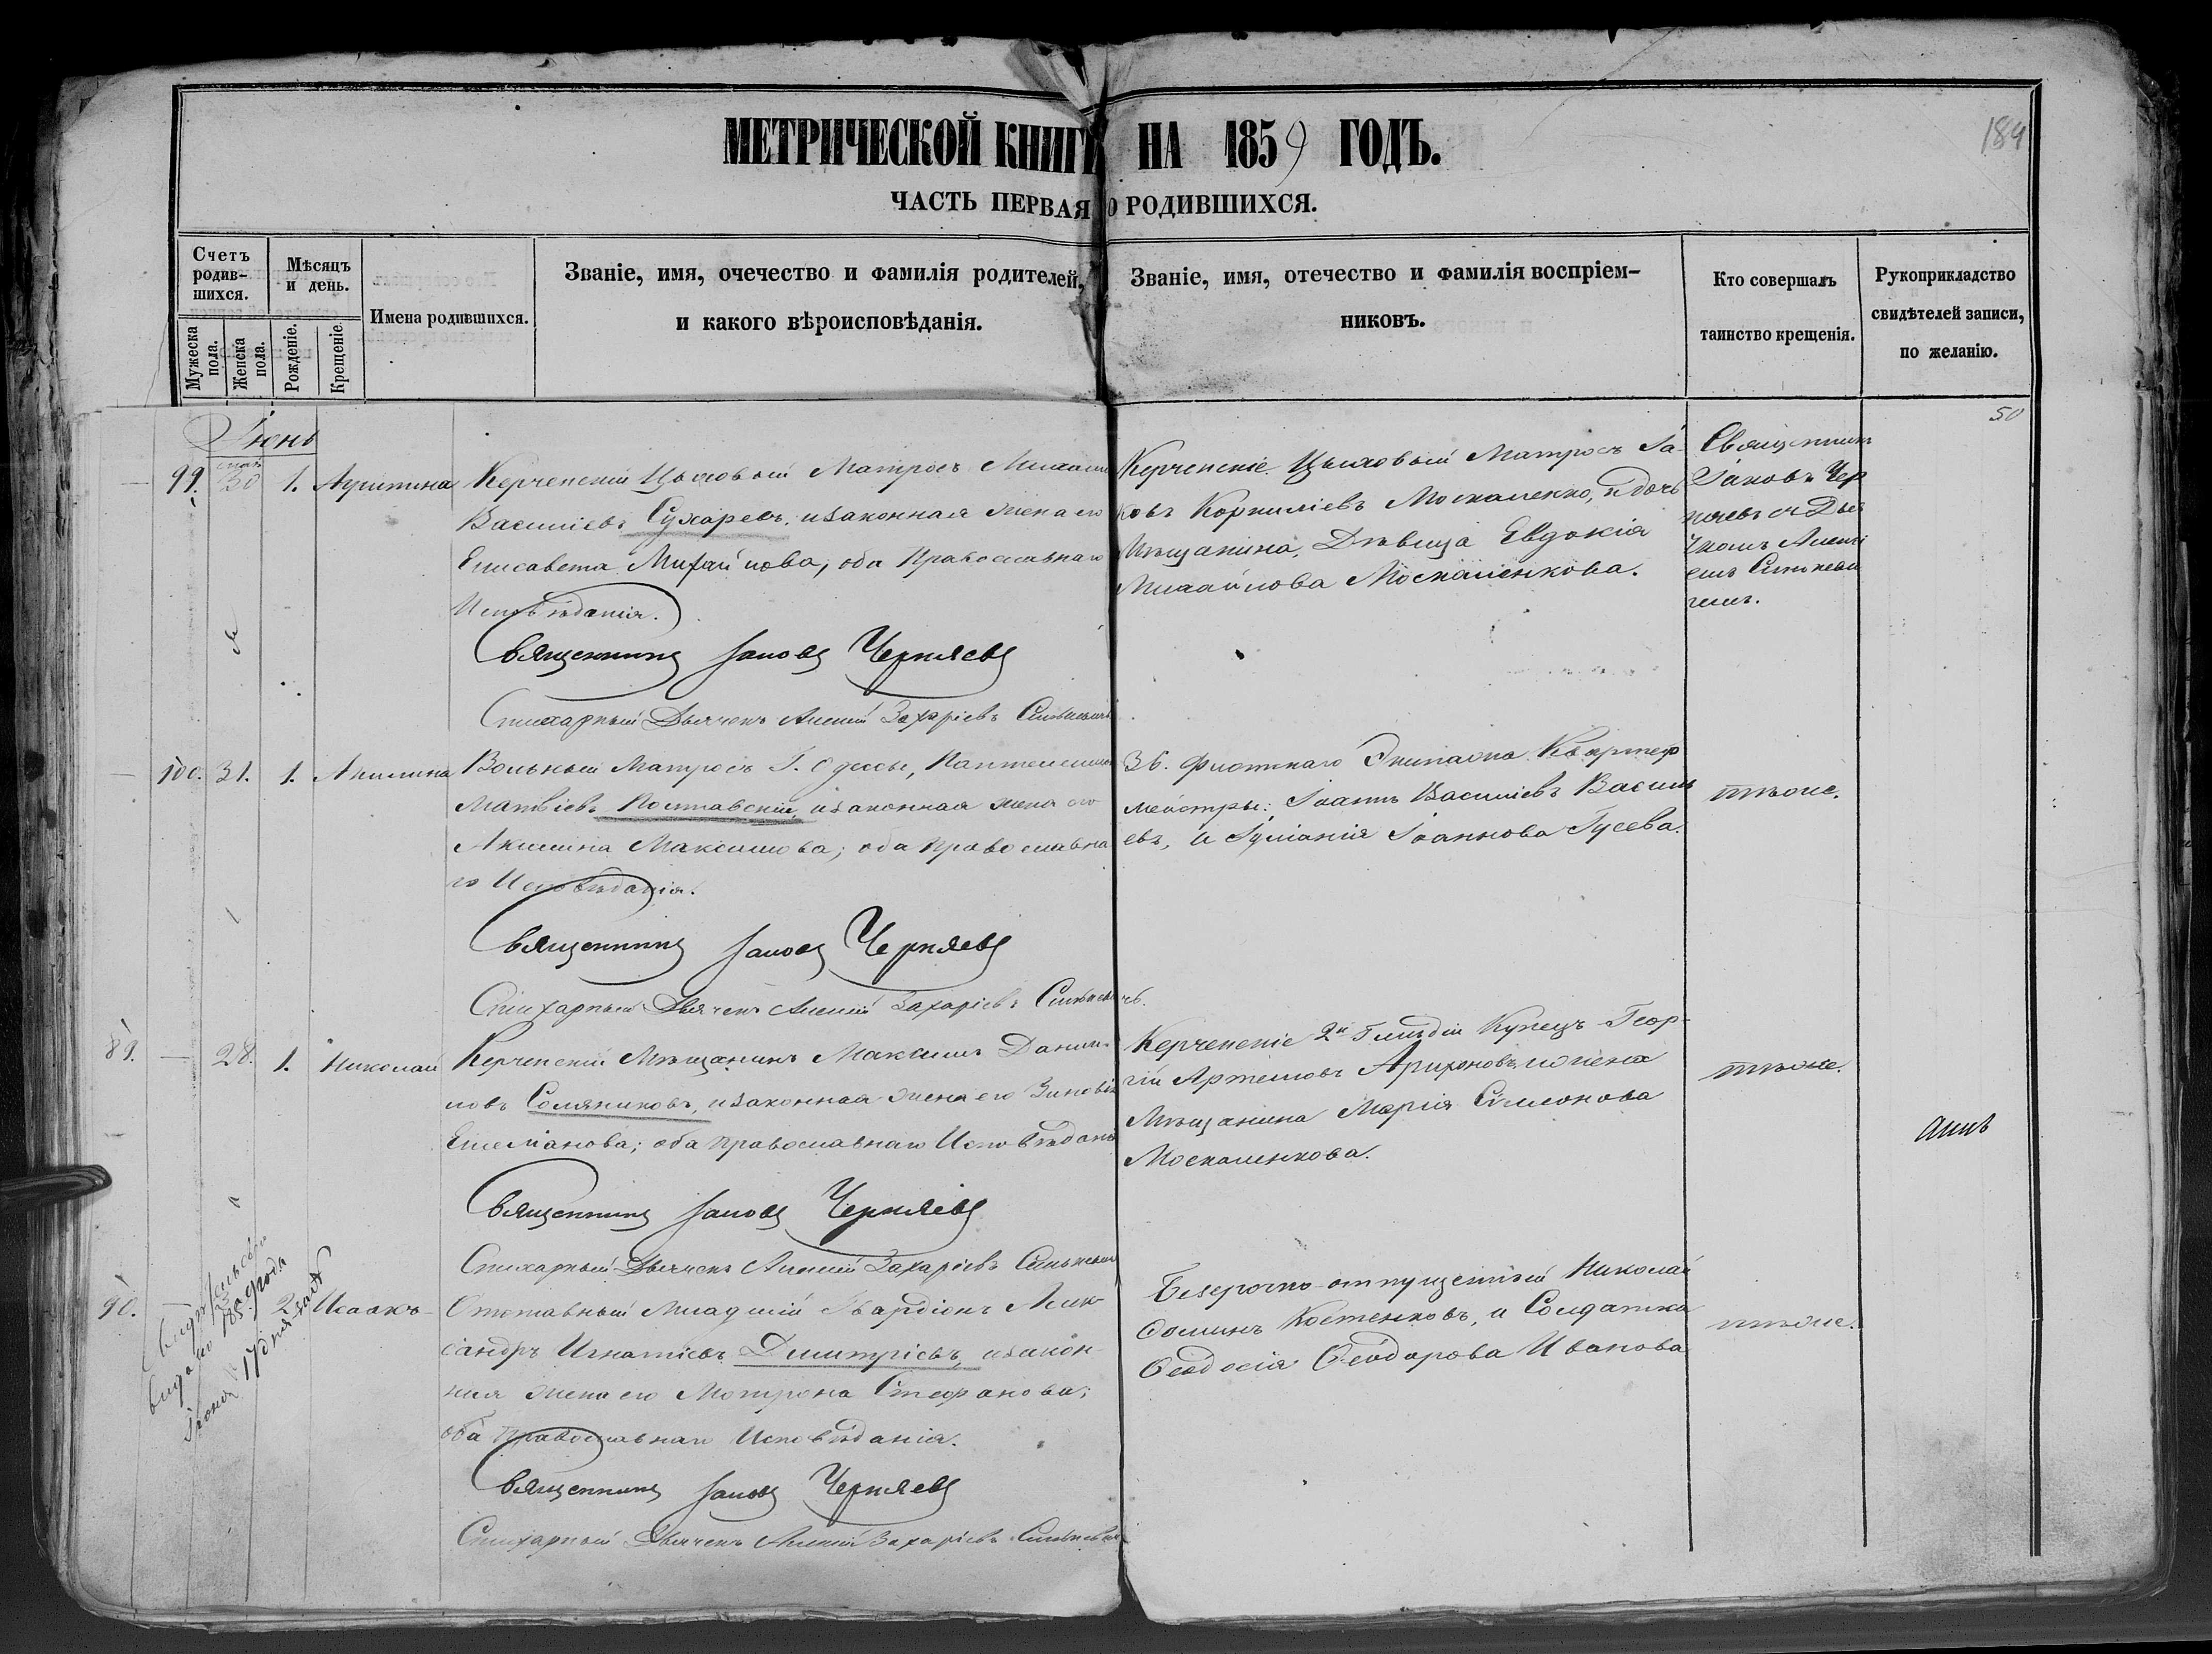 МЕТРИЧЕСКОЙ КНИГИ НА 1859 ГОДЪ.
189
ЧАСТЬ ПЕРВАЯ О РОДИВШИХСЯ.
Счетъ родив-
шихся.
Мужеска пола.
Женска пола.
Мѣсяцъ и день.
Рожденіе.
Крещеніе.
Имена родившихся.
Званіе, имя, очечество и фамилія родителей,
и какого вѣроисповѣданія.
Званіе, имя, отечество и фамилія воспріем-
никовъ.
Кто совершалъ
таинство крещенія.
Рукоприкладство
свидѣтелей записи,
по желанію.
50
Іюнь
99. 30 1.
Керченскій Цыховый Матросъ
Василіевъ Сухаревъ, изаконная жена его
Елисавета Михайлова, оба Православнаго
Исповѣданія.
Священникъ Іаковъ Черняевъ
Стихарный Дьячекъ Алексій Захаріевъ
Керченскіе Цыховый Матросъ Іа-
ковъ Корниліевъ Москаленко, и дочь
Мѣщанина, Дѣвица Евдокія
Михайлова Москаленкова.
Священникъ
Іаковъ Чер
няевъ съ Дья
чкомъ Алексі
емъ
100. 31. 1. Акилина
Вольный Матросъ Г. Одессы,
Матвіевъ Полтавскій, изаконная жена его
Акилина Максимова; оба православна
го Исповѣданія.
Священникъ Іаковъ Черняевъ
Стихарный Дьячекъ Алексій Захаріевъ
36. Флотскаго Экипажа Квартер
мейстры: Іоаннъ Василіевъ Василь
евъ, и Іуліанія Іоаннова Гусева.
тѣже.
89. — 28. 1. Николай
Керченскій Мѣщанинъ Максимъ Дании-
ловъ Соляниковъ, изаконная жена его Зиновія
оба православнаго Исповѣдані
Священникъ Іаковъ Черняевъ
Стихарный Дьячекъ Алексій Захаріевъ
Керченскіе 2й Гильдіи Купецъ Геор-
гій Артемовъ и жена
Мѣщанина Марія Сімонова
Москаленкова.
тѣже.
90. 2 Исаакъ
выдано 1859 года
Іюня 17 дня
Отставный Младшій Гвардіонъ Алек-
сандръ Игнатіевъ Димитріевъ, изакон-
ная жена его Мотрона Стефанова;
оба православнаго Исповѣданія.
Священникъ Іаковъ Черняевъ
Стихарный Дьячекъ Алексій Захаріевъ
Безсрочно-отпущенный Николай
Костенковъ, и Солдатка
Ѳеодосія Ѳеодорова Иванова
тѣже.